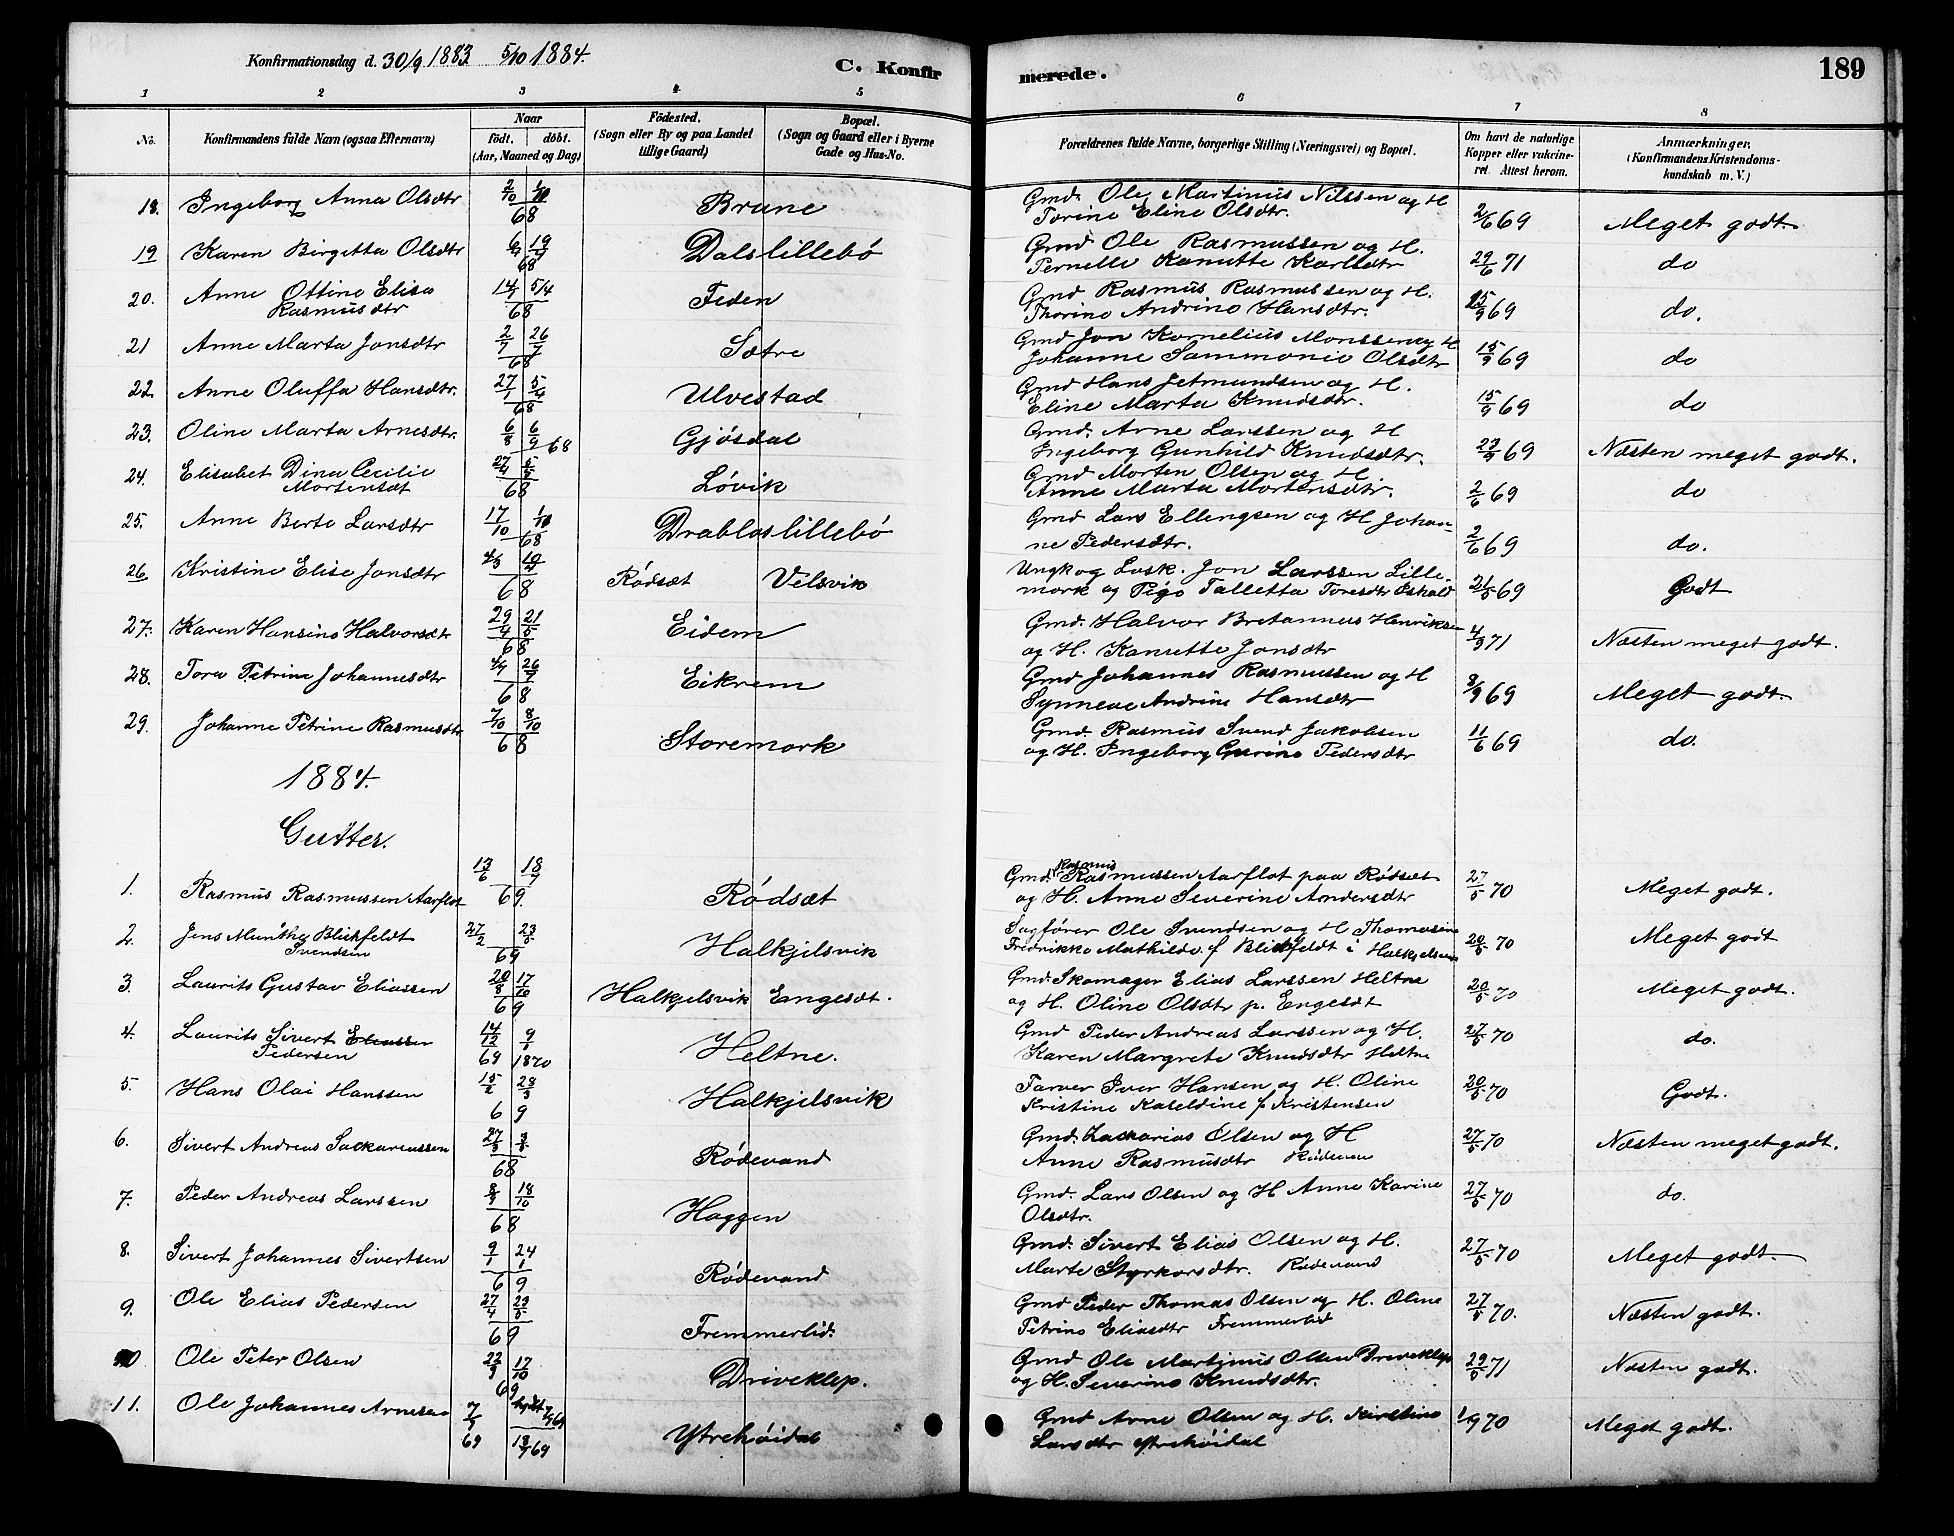 Konfirmationsdag d. 30/9 1883 5/10 1884.
C. Konfirmerede.
189
1 2 3 4 5 6 7 8
No. Konfirmandens fulde Navn (ogsaa Efternavn) Naar født. døbt. (Aar, Maaned og Dag) Fødested. (Sogn eller By og paa Landet tillige Gaard) Bopæl. (Sogn og Gaard eller i Byerne Gade og Hus-No. Forældrenes fulde Navne, borgerlige Stilling (Næringsvei) og Bopæl. Om havt de naturlige Kopper eller vakcineret. Attest herom. Anmærkninger. (Konfirmandens Kristendomskundskab m. V.)
18. Ingeborg Anna Olsdtr 2/10 1/11 68 Brune Gmd. Ole Martinus Nilssen og H Torine Eline Olsdtr. 2/6 69 Meget godt.
19 Karen Birgetta Olsdtr 68 Dalslillebø Gmd Ole Rasmussen og H. Pernelle Kanutte Karlsdtr 29/6 71 do
20. Anne Ottine Elisa Rasmusdtr 14/1 5/4 68 Feden Gmd Rasmus Rasmussen og H. Thorine Andrine Hansdtr. 15/9 69 do.
21 Anne Marta Jonsdtr 2/7 26/7 68 Sætre Gmd Jon Kornelius Monssen og H Johanne Sammonie Olsdtr 15/9 69 do
22. Anne Oluffa Hansdtr. 27/1 5/4 68 Ulvestad Gmd Hans Jetmundsen og H. Eline Marta Knudsdtr. 15/9 69 do
23. Oline Marta Arnesdtr. 6/8 6/9 68 Gjøsdal Gmd. Arne Larssen og H Ingeborg Gunhild Knudsdtr. 23/9 69 Næsten meget godt.
24. Elisabet Dina Cecilie Mortensdt 27/4 68 Løvik Gmd Morten Olsen og H Anne Marta Mortensdtr. 2/6 69 do
25. Anne Berte Larsdtr 17/10 1/11 68 Drabløslillebø Gmd Lars Ellengsen og H Johanne Pedersdtr. 2/6 69 do.
26 Kristine Elise Jonsdtr 4/3 68 Rødsæt Velsvik Ungk og Losk. Jon Larssen Lillemork og Pige Talletta Toresdtr 21/5 69 Godt
27. Karen Hansine Halvorsdtr 29/4 21/5 68 Eidem Gmd. Halvor Bretannus Henriksen og H. Kanutte Jonsdtr 4/9 71 Næsten meget godt.
28. Tora Petrine Johannesdtr 26/7 68 Eikrem Gmd Johannes Rasmussen og H Synneve Andrine Hansdtr 8/9 69 Meget godt.
29. Johanne Petrine Rasmusdtr 7/10 8/10 68 Storemork Gmd. Rasmus Svend Jakobsen og H. Ingeborg Gurine Pedersdtr 11/6 69 do.
1884.
Gutter.
1. Rasmus Rasmussen Aarflot 13/6 18/7 69. Rødsæt Gmd. Rasmus Rasmussen Aarflot paa Rødsæt og H. Anne Severine Andersdtr 27/5 70 Meget godt.
2. Jens Munthe Blickfeldt Svendsen 27/2 23/5 69 Halkjelsvik Sagfører Ole Svendsen og H Thomasine Fredrikke Mathilde f Blickfeldt i Halkjelsvik 20/5 70 Meget godt
3. Laurits Gustav Eliassen 20/8 17/10 69 Halkjelsvik Engesæt. Gmd. Skomager Elias Larssen Heltne og H. Oline Olsdtr p. Engesæt 20/5 70 Meget godt.
4. Laurits Sivert Eliassen Pedersen 14/12 69 9/1 1870 Heltne. Gmd Peder Andreas Larssen og H. Karen Margrete Knudsdtr Heltne 27/5 70 do.
5. Hans Olai Hanssen 15/2 28/3 69 Halkjelsvik Farver Iver Hansen og H. Oline Kristine f Kristensen 20/5 70 Godt.
6. Sivert Andreas Sackariassen 27/3 68 Rødevand Gmd. Zackarias Olsen og H Anne Rasmusdtr 27/5 70 Næsten meget godt.
7. Peder Andreas Larssen 18/10 68 Haggen Gmd. Lars Olsen og H Anne Karine Olsdtr. 27/5 70 do.
8. Sivert Johannes Sivertsen 9/1 24/1 69 Rødevand Gmd. Sivert Elias Olsen og H. Marte Styrkorsdtr. Rødevand 27/5 70 Meget godt.
9. Ole Elias Pedersen 27/4 69 Fremmerlid. Gmd Peder Thomas Olsen og H. Oline Petrine Eliasdtr Fremmerlid 27/5 70. Næsten godt.
10 Ole Peter Olsen 22/9 17/10 69 Driveklep. Gmd Ole Martinus Olsen Driveklep og H. Severine Knudsdtr. 29/5 71 Næsten godt.
11. Ole Johannes Arnesen 7/7 69 18/7 69 Ytrehøidal Gmd Arne Olsen og H. Kirstine Larsdtr Ytrehøidal 1/9 70 Meget godt.